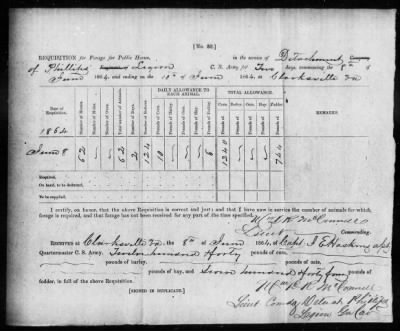 [No. 33.]
REQUISITION for Forage for Public Horses, in the service of Detachment Company
of Phillips Legion C. S. Army for Two days, commencing the 8th of
June 1864, and ending on the 10th of June 1864, at Clarksville Va
Date of Requisition.
Number of Horses.
Number of Mules.
Number of Oxen.
Total number of Animals.
Number of Days.
Number of Rations.
DAILY ALLOWANCE TO EACH ANIMAL.
Pounds of Corn.
Pounds of Barley.
Pounds of Oats.
Pounds of Hay.
Pounds of Fodder.
TOTAL ALLOWANCE.
Corn. Barley. Oats. Hay. Fodder.
REMARKS.
1864
June 8 62 62 2 124 10 6 1240 744
Required.
On hand, to be deducted.
To be supplied.
I certify, on honor, that the above Requisition is correct and just; and that I have now in service the number of animals for which
forage is required, and that forage has not been received for any part of the time specified.
Wm R McConnell
Lieut Commanding.
RECEIVED at Clarksville Va. the 8th of June 1864, of Capt J E Haskins
Quartermaster C. S. Army, Twelve hundred & forty pounds of corn,
pounds of barley, pounds of oats,
pounds of hay, and Seven hundred forty four pounds of
fodder, in full of the above Requisition.
Wm R McConnell
[SIGNED IN DUPLICATE.]
Lieut Comdg Detach Phillips
Legion Ga Cav